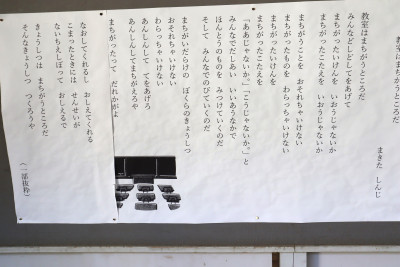 教室はまちがうところだ
まきた しんじ
教室はまちがうところだ
みんなどしどし手をあげて
まちがった意見を いおうじゃないか
まちがった答えを いおうじゃないか
まちがうことを おそれちゃいけない
まちがったものを わらっちゃいけない
まちがった意見を
まちがった答えを
「ああじゃないか」「こうじゃないか」と
みんなでだしあい いいあうなかで
ほんとうのものを みつけていくのだ
そして みんなでのびていくのだ
まちがいだらけの ぼくらのきょうしつ
おそれちゃいけない
わらっちゃいけない
あんしんして 手をあげろ
あんしんしてまちがえろや
まちがったって だれかがよ
なおしてくれるし おしえてくれる
こまったときには せんせいが
ないちえしぼって おしえるで
きょうしつは まちがうところだ
そんなきょうしつ つくろうや
〈一部抜粋〉